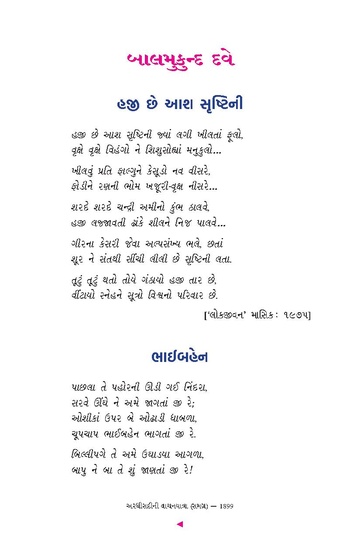 બાલમુકુન્દ દવે
હજી છે આશ સૃષ્ટિની
હજી છે આશ સૃષ્ટિની જ્યાં લગી ખીલતાં ફૂલો,
વૃક્ષે વૃક્ષે વિહંગો ને શિશુસોહ્યાં મનુકુલો...
ખીલવું પ્રતિ ફાલ્ગુને કેસૂડો નવ વીસરે,
ફોડીને રણની ભોમ ખજૂરી-વૃક્ષ નીસરે...
શરદે શરદે ચન્દ્રી અમીનો કુંભ ઠાલવે,
હજી લજ્જાવતી ઢાંકે શીલને નિજ પાલવે...
ગીરના કેસરી જેવા અલ્પસંખ્ય ભલે, છતાં
શૂર ને સંતથી સીંચી લીલી છે સૃષ્ટિની લતા.
તૂટું તૂટું થતો તોયે ગંઠાયો હજી તાર છે,
વીંટાયો સ્નેહને સૂત્રો વિશ્વનો પરિવાર છે.
['લોકજીવન' માસિક: ૧૯૭૫]
ભાઈબહેન
પાછલા તે પહોરની ઊડી ગઈ નિંદરા,
સરવે ઊંઘે ને અમે જાગતાં જી રે;
ઓશીકાં ઉપર બે ઓઢાડી ધાબળા,
ચૂપચાપ ભાઈબહેન ભાગતાં જી રે.
બિલ્લીપગે તે અમે ઉઘાડ્યા આગળા,
બાપુ ને બા તે શું જાણતાં જી રે!
અરધીસદીની વાચનયાત્રા (સમગ્ર) — 1899
◄